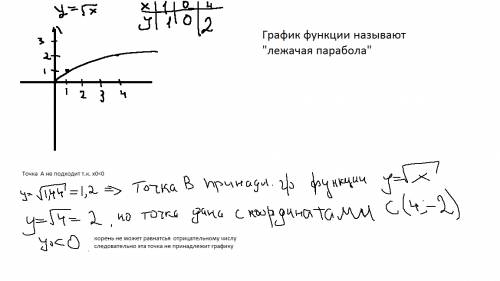 y=√x
x 1 0 4
y 1 0 2
График функции называют
"лежачая парабола"
3
2
1
1 2 3 4
Точка А не подходит т.к. х0<0
y=√1,44=1,2 ⇒ Точка В принадл. гр функции y=√x
y=√4=2, но точка дана с координатами С(4;-2)
y₀<0 корень не может равнятья отрицательному числу
следовательно эта точка не принадлежит графику